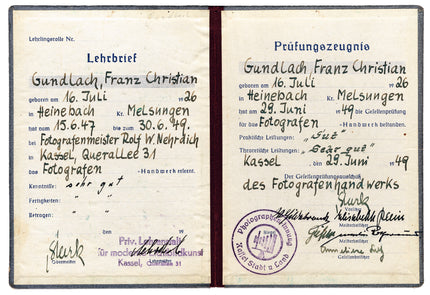 Lehrlingsrolle Nr.
Lehrbrief
Gundlach, Franz Christian
geboren am 16. Juli 1926
in Heinebach Kr. Melsungen
hat vom 15.6.47 bis zum 30.6.49.
bei Fotografenmeister Rolf W. Nehrdich
in Kassel, Querallee 31
das Fotografen -Handwerk erlernt.
Kenntnisse: sehr gut
Fertigkeiten: "
Betragen: "
, den 19
Obermeister
Priv. Lehranstalt
für moderne
Kassel, Querallee 31
Prüfungszeugnis
Gundlach, Franz Christian
geboren am 16. Juli 1926
in Heinebach Kr. Melsungen
hat am 29. Juni 1949 die Gesellenprüfung
für das Fotografen - Handwerk bestanden.
Praktische Leistungen: "Gut"
Theoretische Leistungen: "Sehr gut"
Kassel, den 29. Juni 1949
Der Gesellenprüfungsausschuß
des Fotografenhandwerks
Photographeninnung
Kassel Stadt u. Land